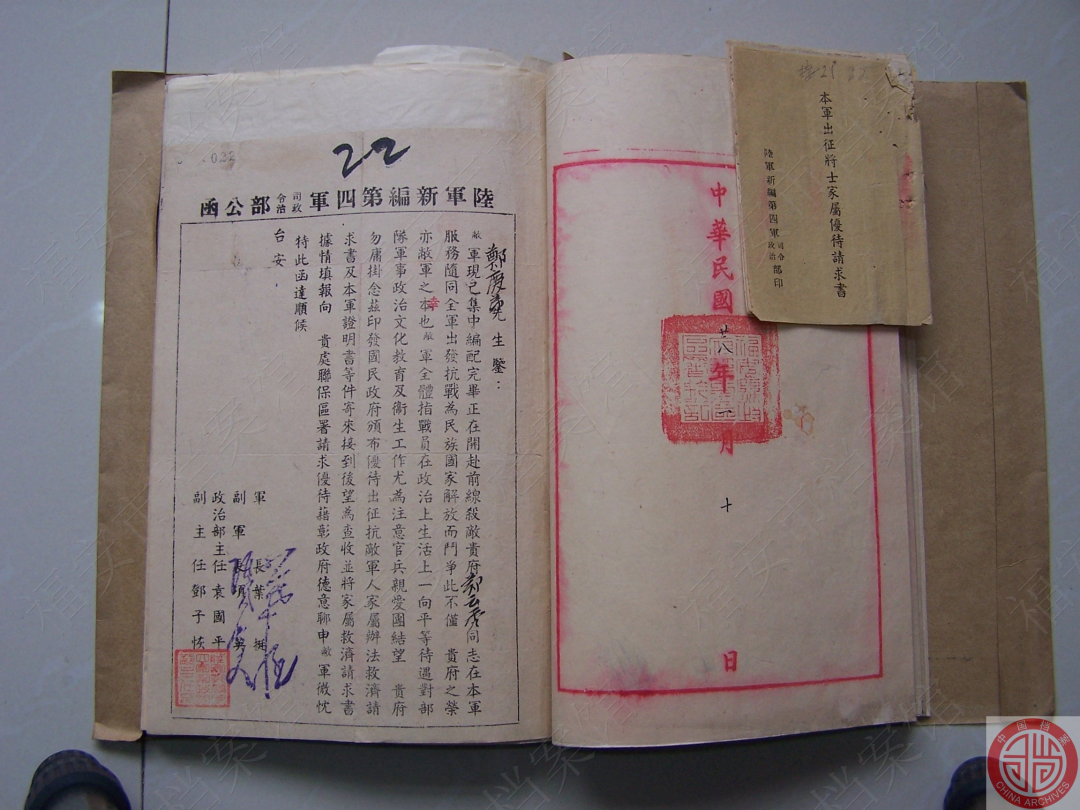 022
22
陸軍新編第四軍司令政治部公函
鄭慶堯 生鑒:
敝軍現已集中編配完畢正在開赴前線殺敵貴府 同志在本軍
服務隨同全軍出發抗戰為民族國家解放而鬥爭此不僅 貴府之榮
亦敝軍之幸也敝軍全體指戰員在政治上生活上一向平等待遇對部
隊軍事政治文化教育及衞生工作尤為注意官兵親愛團結望 貴府
勿庸掛念茲印發國民政府頒布優待出征抗敵軍人家屬辦法救濟請
求書及本軍證明書等件寄來接到後望為查收並將家屬救濟請求書
據情填報向 貴處聯保區署請求優待藉彰政府德意聊申敝軍微忱
特此函達順候
台安
軍長葉挺
副軍長項英
政治部主任袁國平
副主任鄧子恢
本軍出征將士家屬優待請求書
陸軍新編第四軍司令政治部印
中華民國廿八年 月十日
中国档案
CHINA ARCHIVES